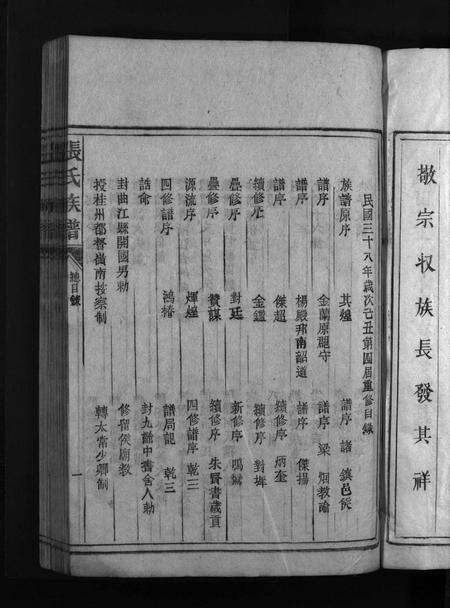 敬宗收族長發其祥
民國三十八年歲次己丑第四届重修目錄
族譜原序 其煌 譜序 諸鎮邑侯
譜序 金蘭原麗守 譜序 梁炯教諭
譜序 楊殿邦南韶道 譜序 傑揚
譜序 傑超 續修序 炳奎
續修序 金鑑 續修序 對墀
疊修序 對廷 新修序 鳴
疊修序 贊謀 續修序 朱賢書歲貢
源流序 煇煌 四修譜序 乾三
四修譜序 鴻椿 譜局說 乾三
誥命 封九齡中書舍人勅
封曲江縣開國男勅 修留侯廟教
授桂州都督嶺南按察制 轉太常少卿制
張氏族譜
總目錄
一